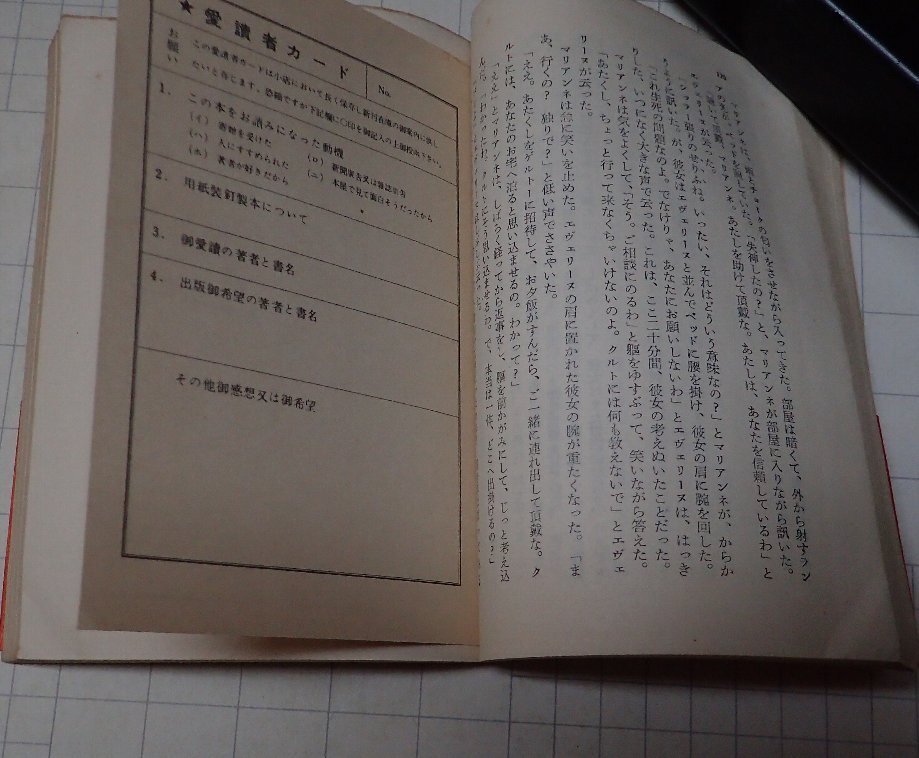 ★愛讀者カード
No.
お願い
この愛讀者カードは小店において長く保存し新刊在庫の御案内に供し
たいと存じます。恐縮ですが下記欄に〇印を御記入の上御投函下さい。
1. この本をお讀みになった動機
(イ) 寄贈を受けた (ロ) 新聞廣告又は雜誌書名
(ハ) 人にすすめられた (ニ) 本屋で見て面白そうだったから
(ホ) 著者が好きだから
2. 用紙裝釘製本について
3. 御愛讀の著者と書名
4. 出版御希望の著者と書名
その他御感想又は御希望
の匂いをさせながら入ってきた。部屋は暗くて、外から射すラン
「失神したの?」と、マリアンネが部屋に入りながら訊いた。
マリアンネ、あたしを助けて頂戴な。あたしは、あなたを信頼しているわ」と
エヴェリーヌが云った。
せりふね。いったい、それはどういう意味なの?」とマリアンネが、からか
うように訊いた。が、彼女はエヴェリーヌと並んでベッドに腰を掛け、彼女の肩に腕を回した。
「これは生死の問題なのよ。でなけりゃ、あなたにお願いしないわ」とエヴェリーヌは、はっき
りした、いつになく大きな声で云った。これは、ここ二十分間、彼女の考えぬいたことだった。
マリアンネは気をよくして、「そう。ご相談にのるわ」と軀をゆすぶって、笑いながら答えた。
「あたくし、ちょっと行って来なくちゃいけないのよ。クルトには何も教えないで」とエヴェ
リーヌが云った。
マリアンネは急に笑いを止めた。エヴェリーヌの肩に置かれた彼女の腕が重たくなった。「ま
あ、行くの? 独りで?」と低い声でささやいた。
「ええ。あたくしをゲルトルに招待して、お夕飯がすんだら、ご一緒に連れ出して頂戴な。ク
ルトには、あなたのお宅へ泊ると思い込ませるの。わかって?」
「ええ」とマリアンネは、しばらく経ってから返事をし、軀を前かがみにして、じっと考え込